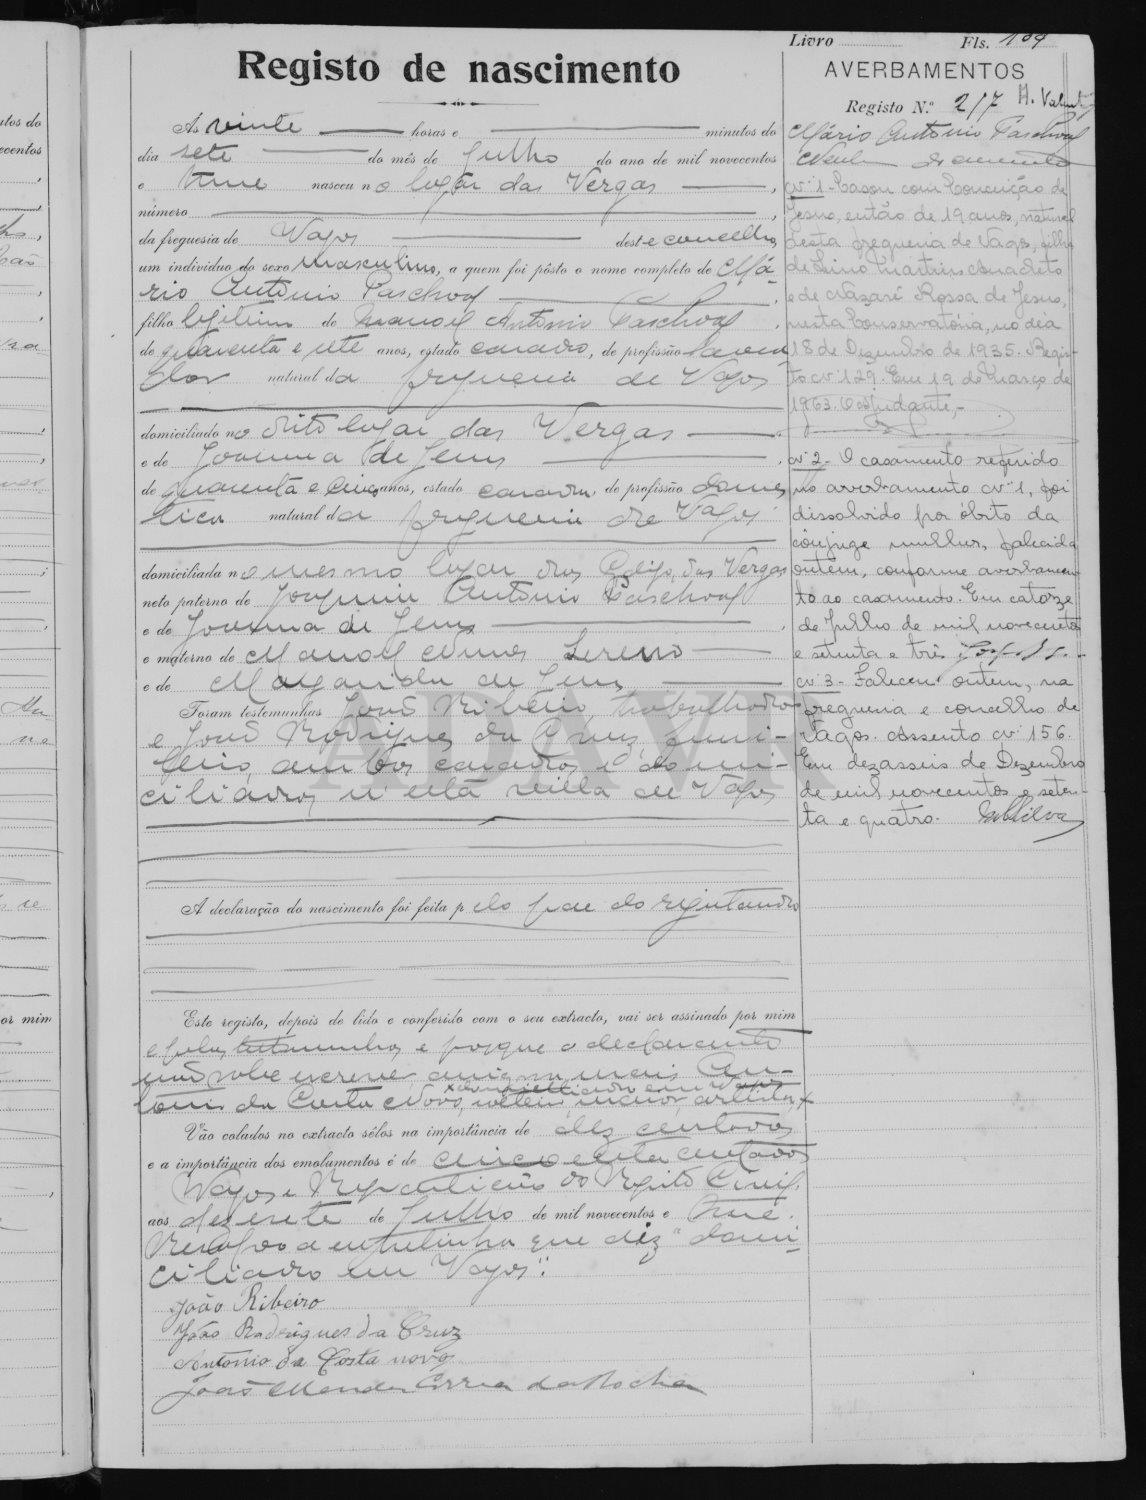 Livro Fls. 109
Registo de nascimento
AVERBAMENTOS
Registo N.º 217
Mário Antonio Paschoal
As vinte horas e minutos do
dia sete do mês de Julho do ano de mil novecentos
e treze nasceu no logar das Vergas,
número ,
da freguesia de Vagos deste concelho,
um individuo do sexo masculino, a quem foi pôsto o nome completo de Má-
rio Antonio Paschoal ,
filho legitimo de Manoel Antonio Paschoal,
de quarenta e sete anos, estado casado, de profissão lavra
dor natural da freguesia de Vagos
domiciliado no dito logar das Vergas
e de Joanna de Jesus ,
de quarenta e cinco anos, estado casada de profissão domes
tica natural da freguesia de Vagos
domiciliada no mesmo logar das Vergas
neto paterno de Joaquim Antonio Paschoal
e de Joanna de Jesus ,
e materno de Manoel Nunes Sereno
e de Margarida de Jesus
Foram testemunhas João Ribeiro, trabalhador
e João Rodrigues da Cruz, funi-
leiro, ambos casados e domi-
ciliados n'esta villa de Vagos
ADAVR
A declaração do nascimento foi feita pelo pae do registando
Este registo, depois de lido e conferido com o seu extracto, vai ser assinado por mim
e pelas testemunhas e porque o declarante
não sabe escrever assigna mais An-
domiciliado em Vagos
tonio da Costa Novo, solteiro, maior, artista,
Vão colados no extracto sêlos na importância de dez centavos
e a importância dos emolumentos é de cincoenta centavos
Vagos e Repartição do Registo Civil,
aos dezesete de Julho de mil novecentos e treze.
Resalvo a entrelinha que diz "domi-
ciliado em Vagos".
João Ribeiro
João Rodrigues da Cruz
Antonio da Costa novo
João Mendes Correia da Rocha
Nº 1 - Casou com Conceição de
Jesus, então de 19 anos, natural
desta freguesia de Vagos, filha
de Lino Martins
e de Nazaré Rosa de Jesus,
nesta Conservatória, no dia
18 de Dezembro de 1935. Regis-
to nº 129. Em 19 de Março de
1963. O ajudante,-
Nº 2 - O casamento referido
no averbamento nº 1, foi
dissolvido por óbito da
cônjuge mulher, falecida
ontem, conforme averbamen-
to ao casamento. Em catorze
de Julho de mil novecentos
e setenta e três
Nº 3 - Faleceu ontem, na
freguesia e concelho de
Vagos. Assento nº 156.
Em dezasseis de Dezembro
de mil novecentos e seten-
ta e quatro.